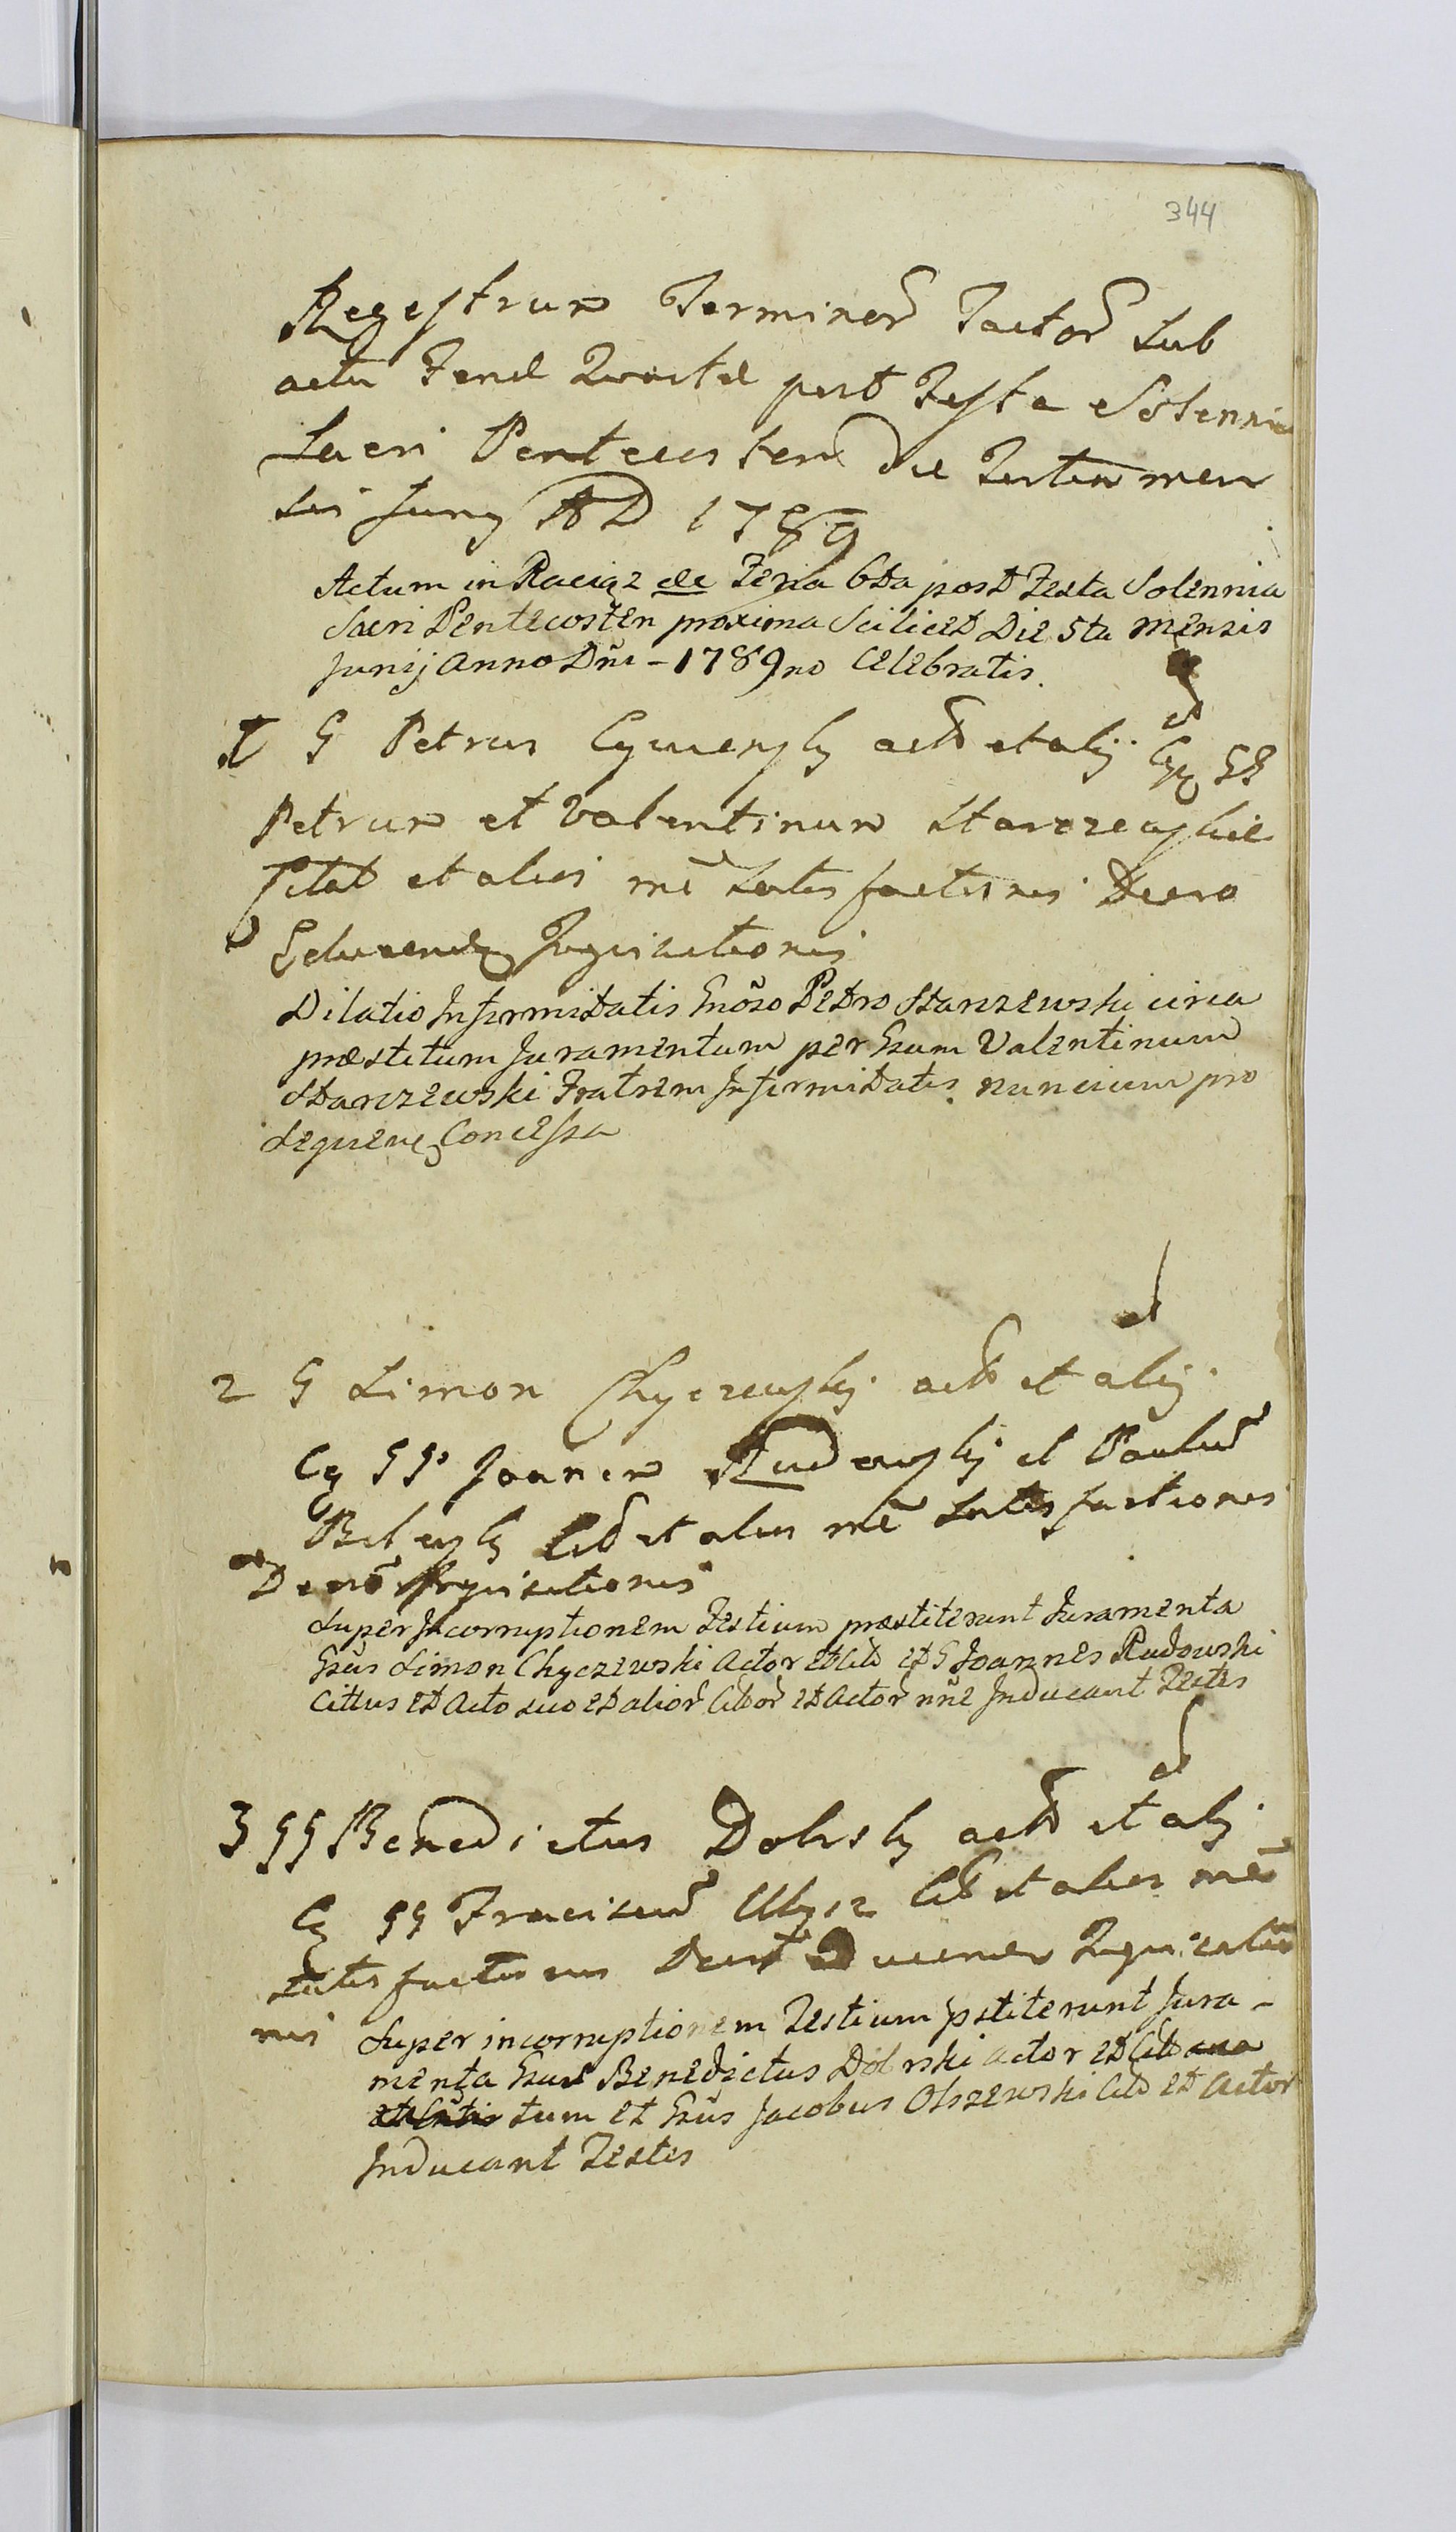 344
Regestrum Terminor Tactor sub
actu Feriæ Quartæ post Festa Solennia
Sacri Pentecosten die tertia men
sis Juny AD 1789
Actum in Raciąz de Feria 6ta post Festa Solennia
Sacri Pentecosten proxima Scilicet Die 5ta Mensis
Junij Anno Dni - 1789no Celebratis.
d
1 G Petrus act et alij GG
Petrum et Valentinum Starczewskie
Citat et alios satisfactionis Decro
Inquisitionis
Dilatio Infirmitatis Gnoso Petro Starzewski circa
præstitum Juramentum per Gsum Valentinum
Starzewski Fratrem Infirmitatis nuncium pro
sequene Concessa
d
2 G Simon Chyczewsky act et alij
GG Joannem Rudowsky et Paulu
et alios satisfactiones
Decro Inquisitionis
Super Incorruptionem Testium præstiterunt Juramenta
Gsus Simon Chyczewski Actor et Cit et G Joannes Rudowski
Cittus et Acto suo et alior Citor et Actor nne Inducant Testes
d
3 GG Benedictus Dolrsky act et alij
GG Franciscu et alios
satisfactionis Inquisitio
nis Super incorruptionem Testium pstiterunt Jura-
menta Gsus Benedictus Dolrski actor et Cit
tum et Gsus Jacobus Olszewski Cit et Actor
Inducant Testes